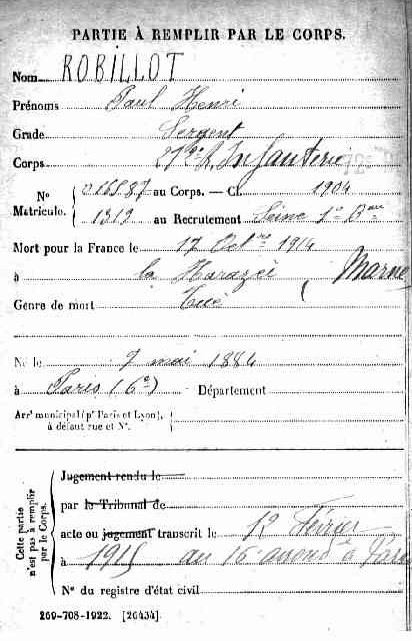 PARTIE À REMPLIR PAR LE CORPS.
Nom ROBILLOT
Prénoms Paul Henri
Grade Sergent
Corps Infanterie
N° Matricule. 016587 au Corps. — Cl. 1904
1313 au Recrutement Seine 1er Bau
Mort pour la France le 17 Octbre 1914
à la Harazée (Marne
Genre de mort Tué
Né le 7 mai 1884
à Paris (6e) Département
Arrt municipal (pr Paris et Lyon),
à défaut rue et N°.
Cette partie n'est pas à remplir par le Corps.
Jugement rendu le
par le Tribunal de
acte ou jugement transcrit le 12 Février
à 1915 au 16e arrond t à Paris
N° du registre d'état civil
269-708-1922. [26434.]